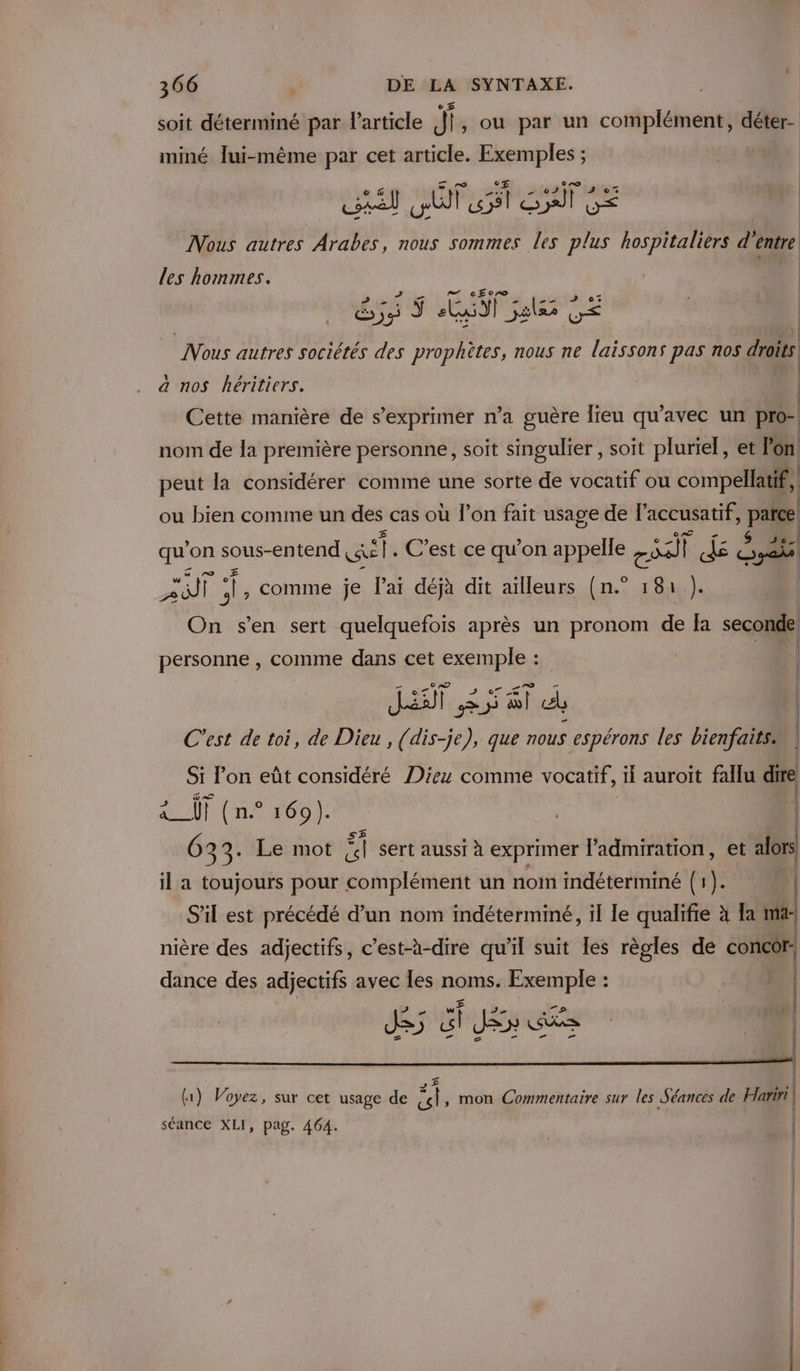 366 DE LA SYNTAXE.
soit déterminé par l'article أَلْ, ou par un complément, déter-
miné lui-même par cet article. Exemples ;
نَحْنُ ٱلْعَرَبَ أَقْرَى ٱلنَّاسِ لِلضَّيْفِ
Nous autres Arabes, nous sommes les plus hospitaliers d'entre
les hommes.
نَحْنُ مَعَاشِرَ ٱلْأَنْبِيَآءِ لَا نُورَثُ
Nous autres sociétés des prophètes, nous ne laissons pas nos droits
à nos héritiers.
Cette manière de s'exprimer n'a guère lieu qu'avec un pro-
nom de la première personne, soit singulier, soit pluriel, et l'on
peut la considérer comme une sorte de vocatif ou compellatif,
ou bien comme un des cas où l'on fait usage de l'accusatif, parce
qu'on sous-entend أَعْنِى. C'est ce qu'on appelle مَنْصُوبٌ عَلَى ٱلْمَدْحِ
أَوِ ٱلذَّمِّ, comme je l'ai déjà dit ailleurs (n.° 181 ).
On s'en sert quelquefois après un pronom de la seconde
personne, comme dans cet exemple :
بِكَ ٱللّٰهَ نَرْجُو ٱلْفَضْلَ
C'est de toi, de Dieu, (dis-je), que nous espérons les bienfaits.
Si l'on eût considéré Dieu comme vocatif, il auroit fallu dire
ٱللّٰهُ (n.° 169).
633. Le mot أَىّ sert aussi à exprimer l'admiration, et alors
il a toujours pour complément un nom indéterminé (1).
S'il est précédé d'un nom indéterminé, il le qualifie à la ma-
nière des adjectifs, c'est-à-dire qu'il suit les règles de concor-
dance des adjectifs avec les noms. Exemple :
جِئْتَنِى بِرَجُلٍ أَىِّ رَجُلٍ
(1) Voyez, sur cet usage de أَىّ, mon Commentaire sur les Séances de Hariri
séance XLI, pag. 464.